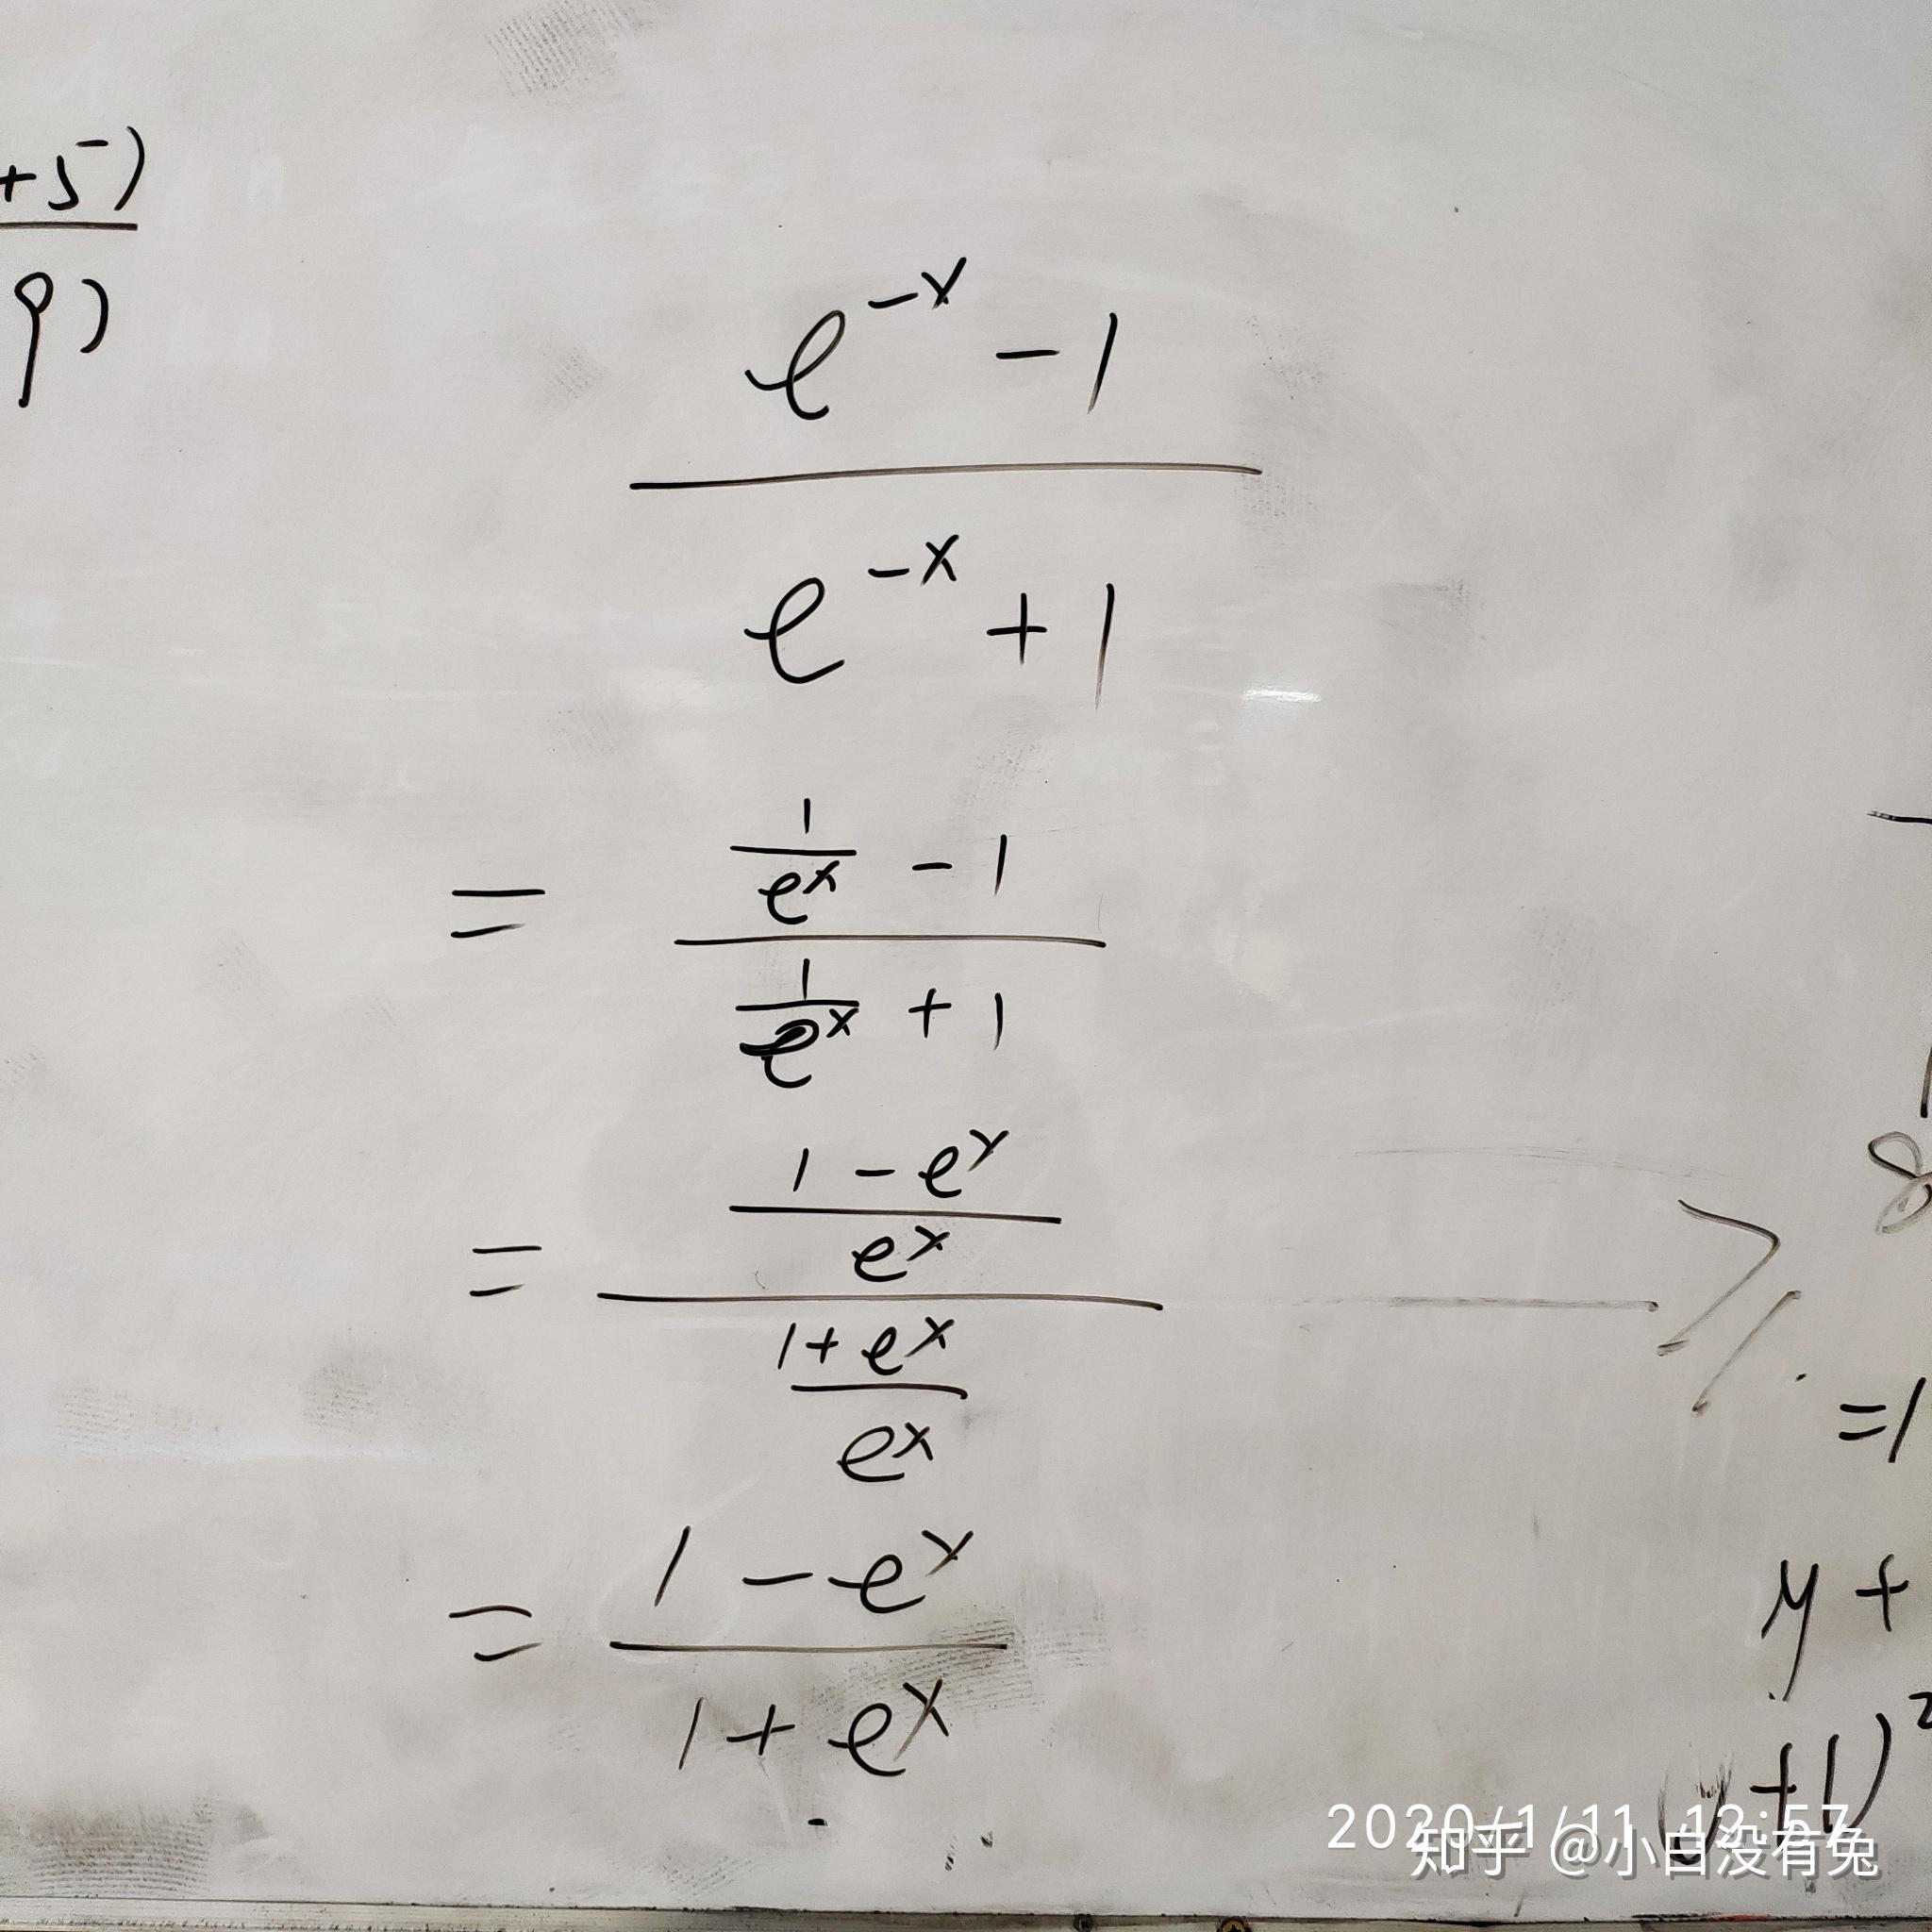 +5)
9)
e^{-x} - 1
e^{-x} + 1
= \frac{\frac{1}{e^x} - 1}{\frac{1}{e^x} + 1}
= \frac{\frac{1 - e^x}{e^x}}{\frac{1 + e^x}{e^x}}
= \frac{1 - e^x}{1 + e^x}
8
=1
y +
(y+1)²
2020/1/11 12:57
知乎 @小白没有兔